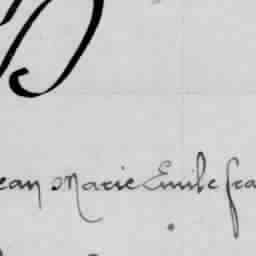 ean Marie Emile fra